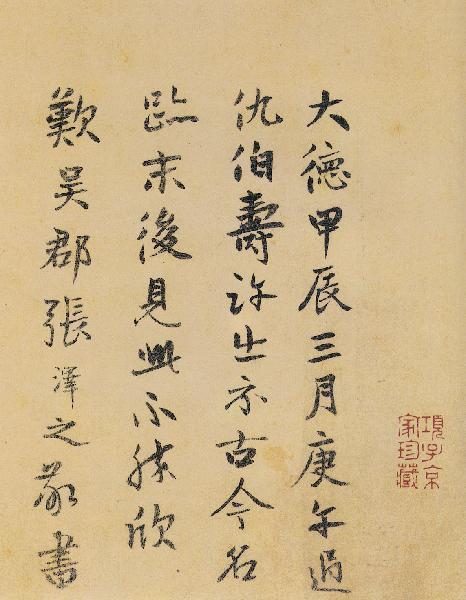 大德甲辰三月庚午過
仇伯壽許出示古今名
蹟末後見此不勝欣
歎吳郡張澤之敬書
項子京
家珍藏